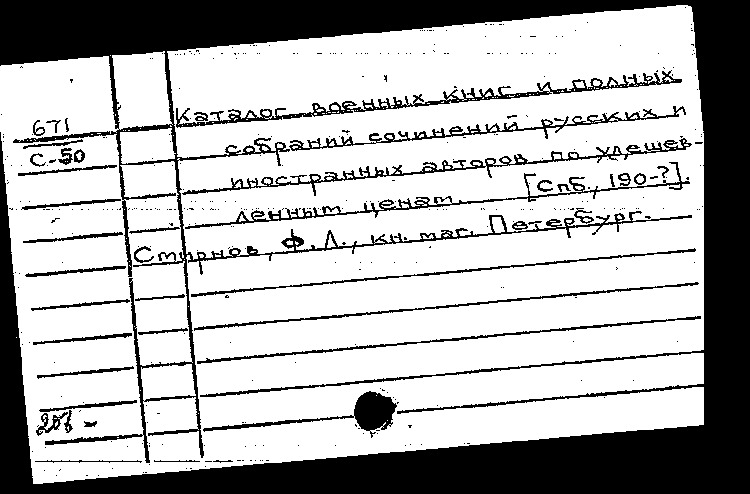 671
С-50
Каталог военных книг и полных
собраний сочинений русских и
иностранных авторов по удешев-
ленным ценам. [Спб., 190-?].
Смирнов, Ф. Л., кн. маг. Петербург.